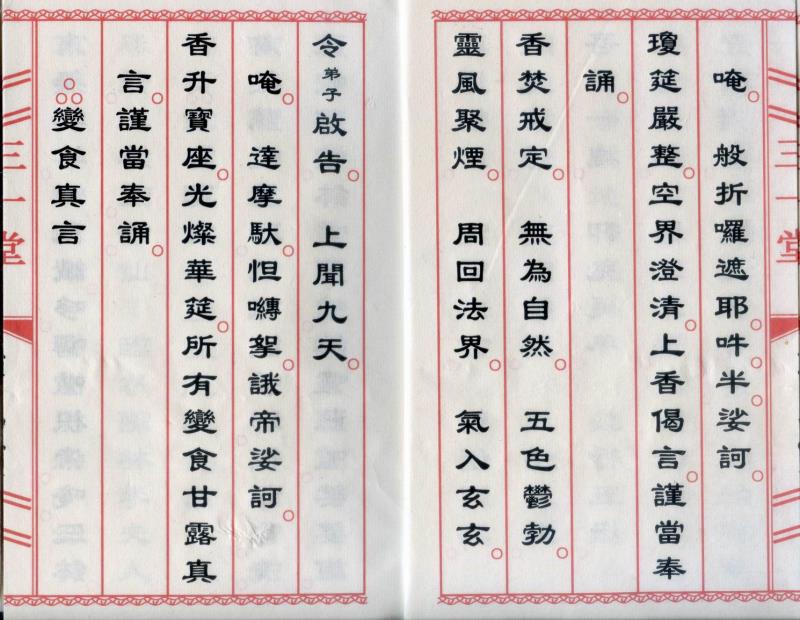 唵。般折囉遮耶吽半娑訶。
瓊筵嚴整。空界澄清。上香偈言。謹當奉
誦。
香焚戒定。無為自然。五色鬱勃。
靈風聚煙。周回法界。氣入玄玄。
令弟子啟告。上聞九天。
唵。達摩馱。怛嚩。拏。誐帝娑訶。
香升寶座。光燦華筵。所有變食甘露真
言。謹當奉誦。
變食真言
三一堂
三一堂